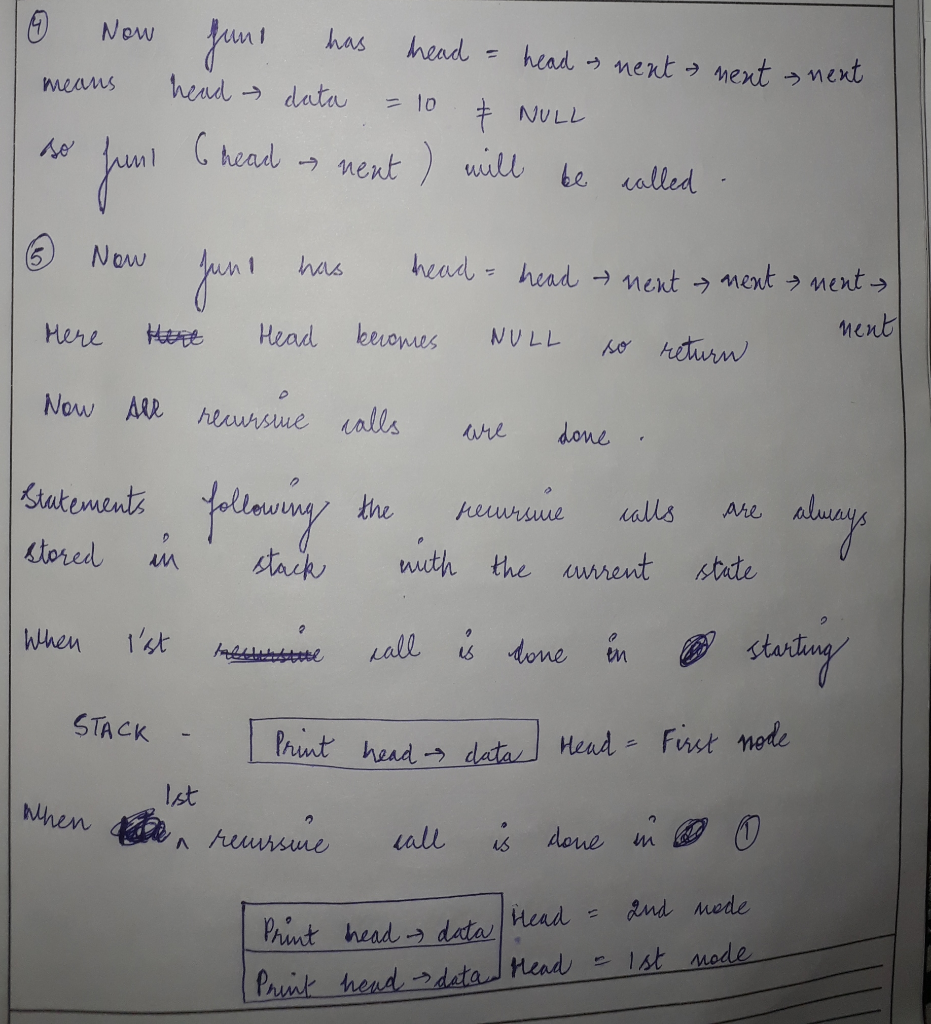 ④ Now fun1 has head = head → next → next → next
means head → data = 10 ≠ NULL
so fun1 (head → next) will be called.
⑤ Now fun1 has head = head → next → next → next →
next
Here Head becomes NULL so return
Now All recursive calls are done.
Statements following the recursive calls are always
stored in stack with the current state
When 1'st call is done in starting
STACK - Print head → data Head = First node
When 1st recursive call is done in ①
Print head → data Head = 2nd node
Print head → data Head = 1st node